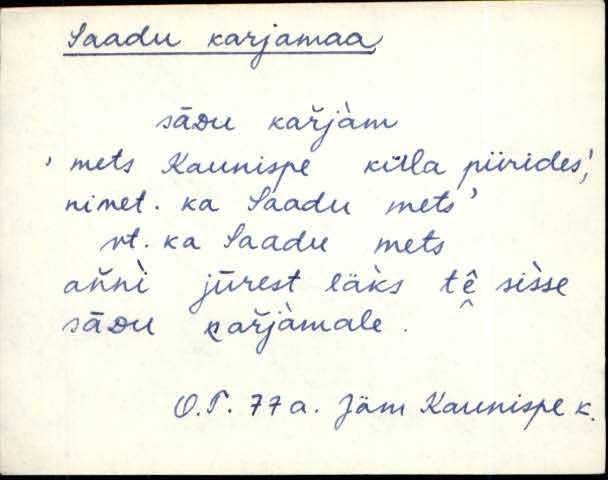 Saadu karjamaa
sāDu kař̀jàm
' mets Kaunispe külla piirides',
nimet. ka Saadu mets'
vt. ka Saadu mets
ańnì jūrest läks tê̬ sìsse
sāDu kařjàmale.
O.T. 77a. Jäm Kaunispe k.